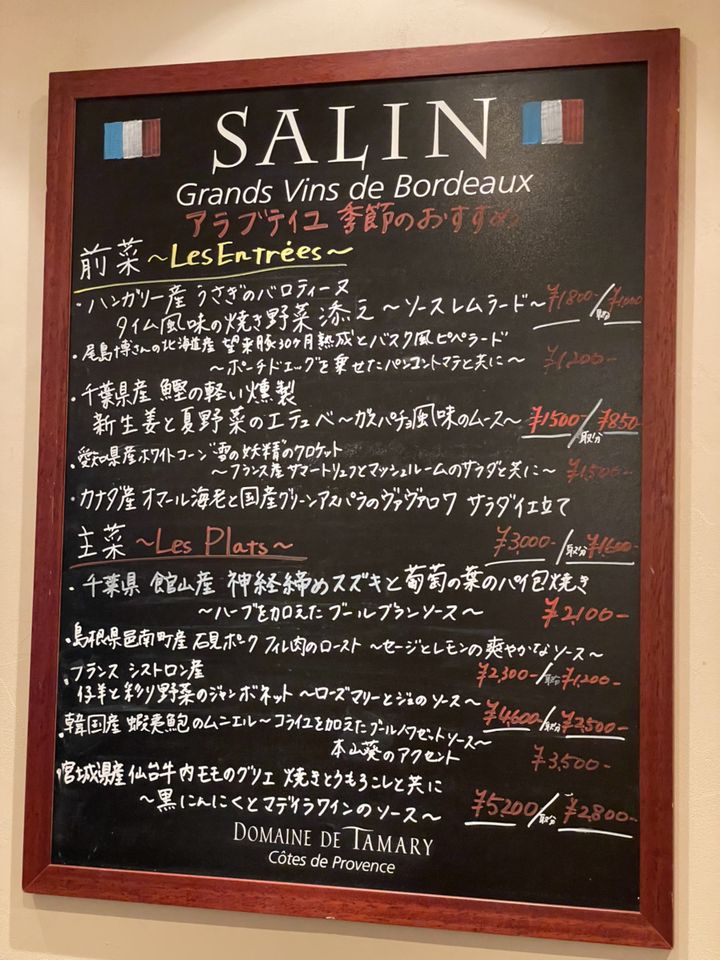 SALIN
Grands Vins de Bordeaux
アラブティユ 季節のおすすめ
前菜 ~Les Entrées~
・ハンガリー産 うさぎのバロティーヌ
タイム風味の焼き野菜添え~ソースレムラード~ ¥1800-/取分¥1,000
・尾島博さんの北海道産 望来豚30ヶ月熟成とバスク風ピペラード
~ポーチドエッグを乗せたパンコントマテと共に~ ¥1,200-
・千葉県産 鰹の軽い燻製
新生姜と夏野菜のエテュベ~ガスパチョ風味のムース~ ¥1500-/取分¥850-
・愛知県産ホワイトコーン"雪の妖精"のクロケット
~フランス産サマートリュフとマッシュルームのサラダと共に~ ¥1,500-
・カナダ産 オマール海老と国産グリーンアスパラのヴァヴァロワ サラダ仕立て
¥3,000-/取分¥1600-
主菜 ~Les Plats~
・千葉県 館山産 神経締めスズキと葡萄の葉のパイ包焼き
~ハーブを加えたブールブランソース~ ¥2100-
・島根県邑南町産 石見ポーク フィレ肉のロースト ~セージとレモンの爽やかなソース~
¥2,300-/取分¥1,200-
・フランス シストロン産
仔羊と彩り野菜のジャンボネット ~ローズマリーとジュのソース~
¥4,600-/取分¥2,500-
・韓国産 蝦夷鮑のムニエル~コライユを加えたブールノワゼットソース~
本山葵のアクセント ¥3,500-
・宮城県産 仙台牛内モモのグリエ 焼きとうもろこしと共に
~黒にんにくとマデイラワインのソース~ ¥5,200/取分¥2,800-
DOMAINE DE TAMARY
Côtes de Provence